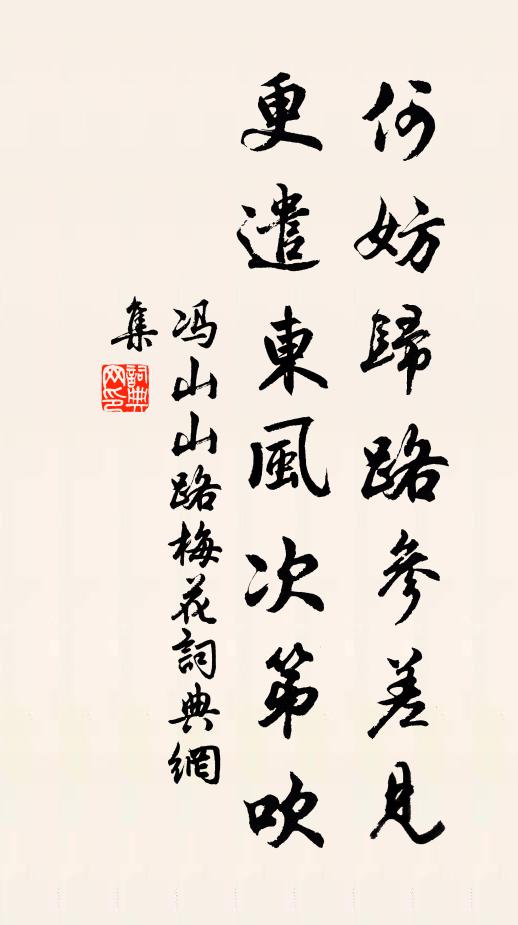 何妨歸路參差見
更遣東風次第吹
冯山山路梅花詞典網
集
詞典网印